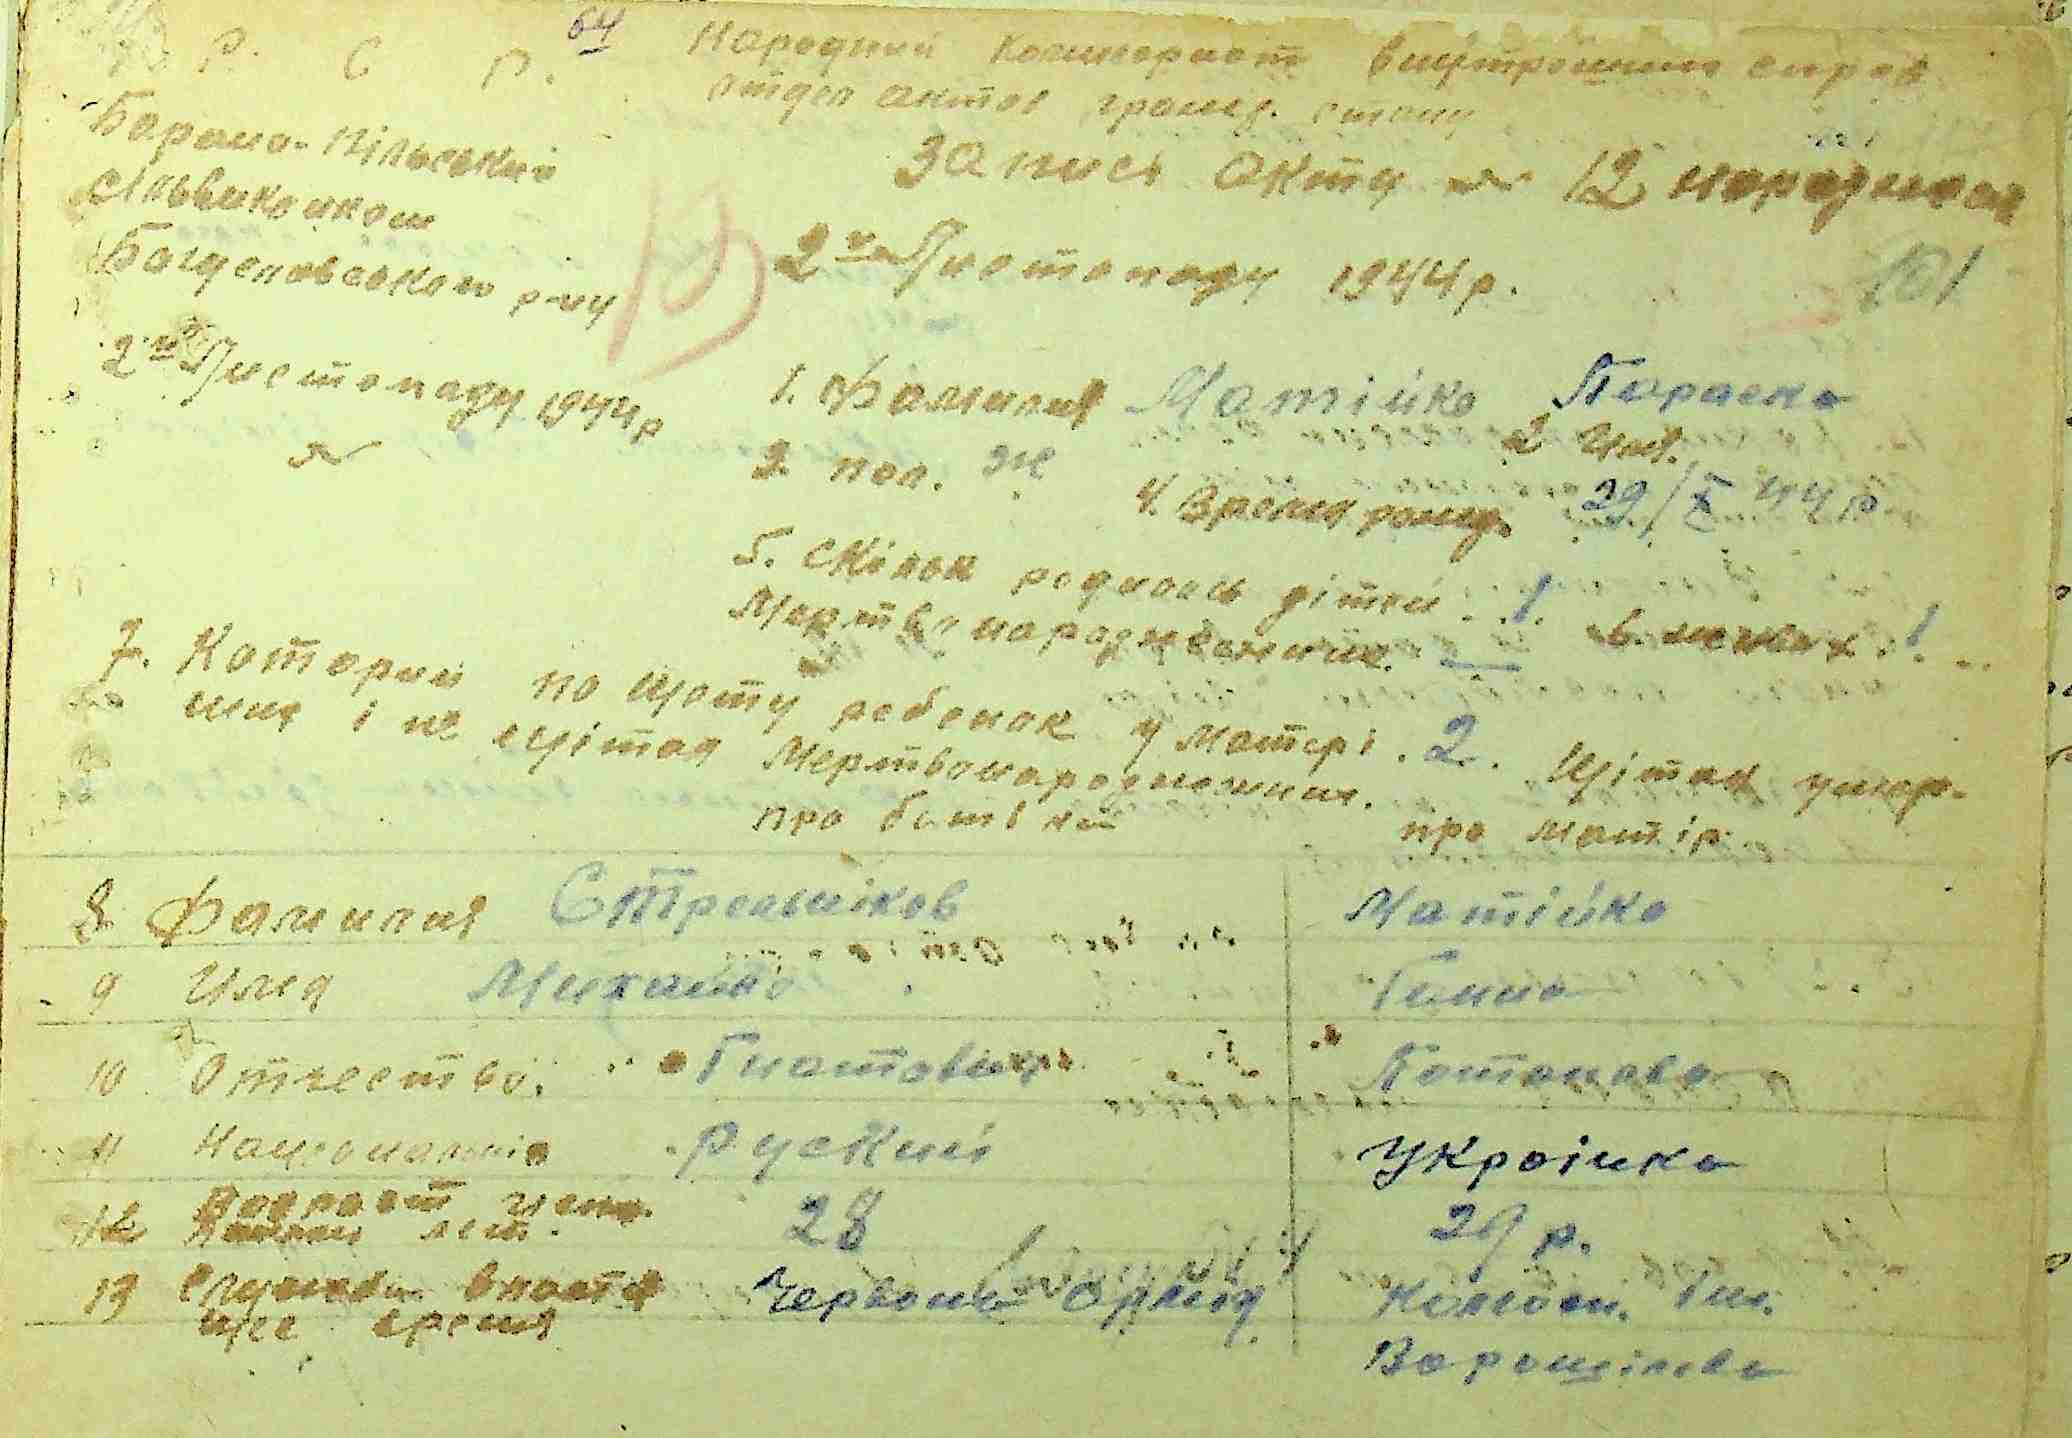 Р. С Р. 64
Народний Комисариат внутрошних справ
отдел актов громад. стану
Барано-Пільський
сільвиконком
Запись акту № 12 народження
2го Листопаду 1944 р.
101
2го Листопаду 1944 р
№
1. Фамилия Матійко Параска
2 имя.
3. пол. Ж 4. Время рожд. 29/X 44 р
5. Скілок родилось дітей. 1. в живих. 1
Мертвонарожденних. —
7. Которий по щоту ребенок у матері. 2. Щітая умер-
ших і не щітая мертвонарожденних.
про батька про матір
8 Фамилия Стрельніков Матійко
9 Имя Михайло Ганна
10 Отчество. Гнатович Потаповна
11 Рускиий Українка
12 Возраст лет. 28 29 р.
13 Служба в настоя
щее время Червона Армія Колгосп. Ім.
Ворошілова